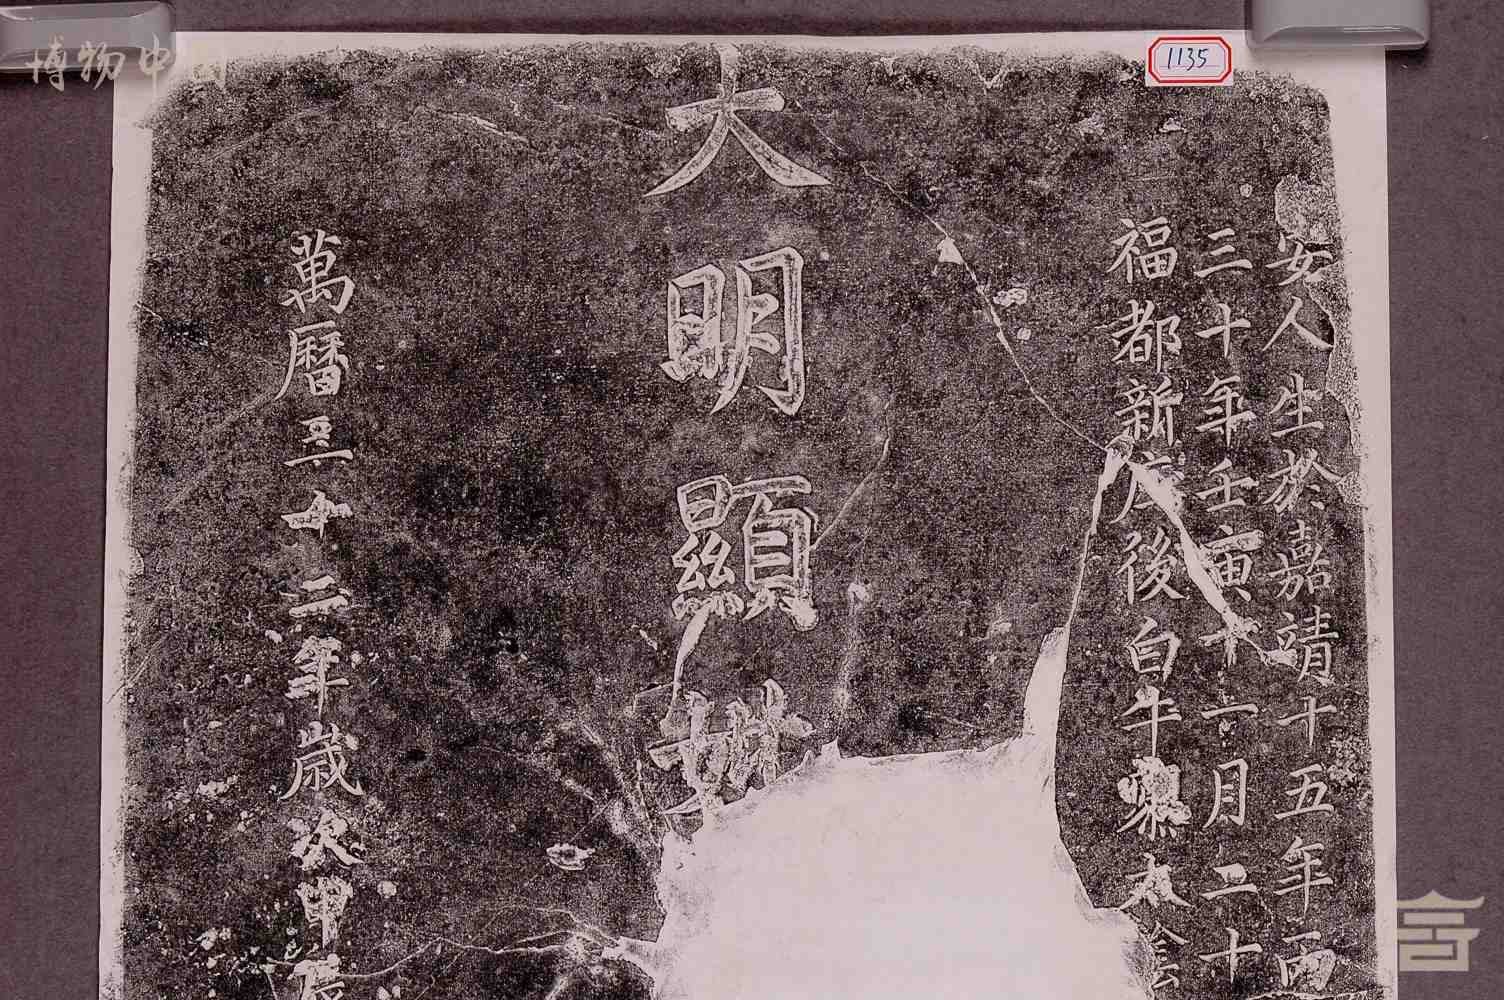 安人生於嘉靖十五年丙
三十年壬寅十一月二十
福都新庄後白牛㠯太
大明顯妣
萬曆三十二年歲次甲辰
1135
博物中国